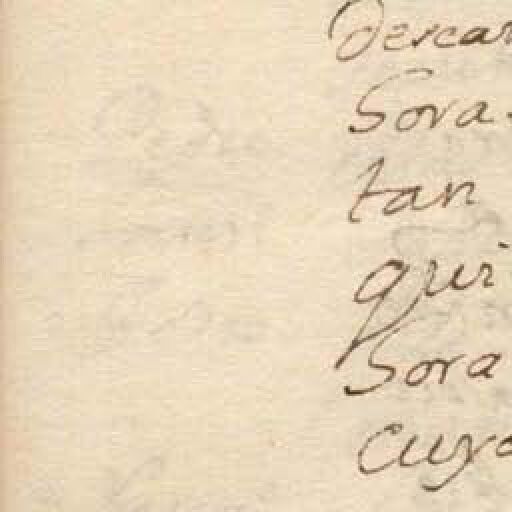 descar
Sora
tan
qui
Sora
cuyo